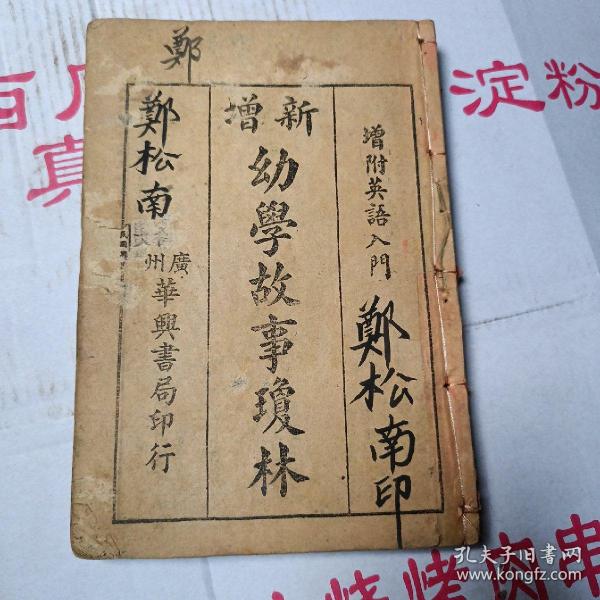 鄭
增附英語入門
鄭松南印
新增
幼學故事瓊林
鄭松南
廣州
華興書局印行
淀粉
真
烤肉串
孔夫子旧书网
www.kongfz.com